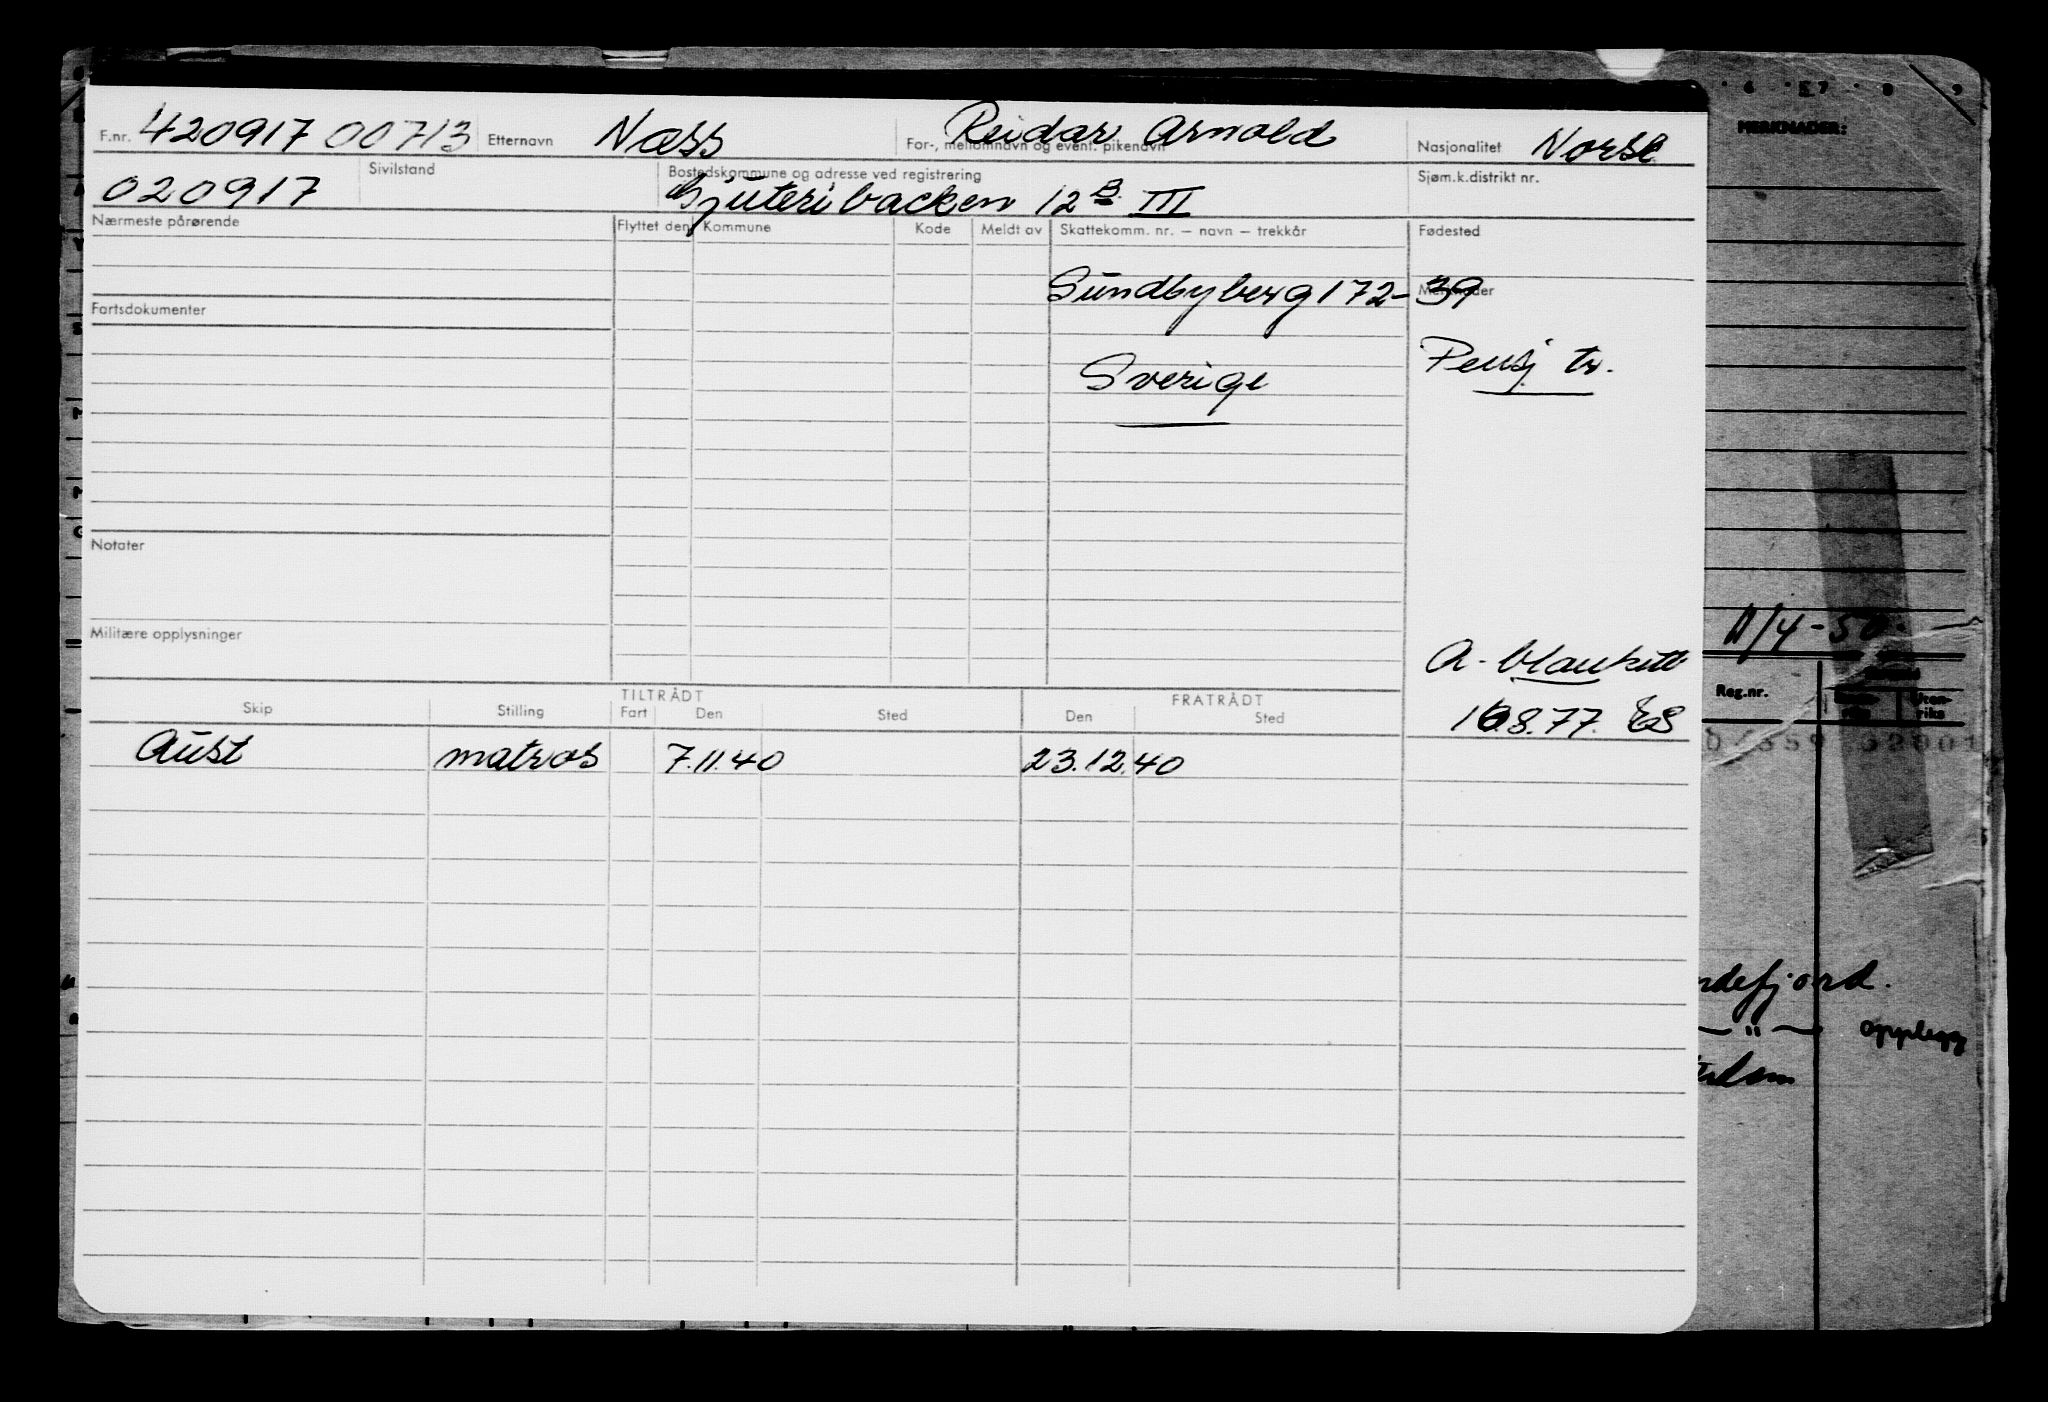 F.nr. 420917 00713 Etternavn Næss For-, mellomnavn og event. pikenavn Reidar Arnold Nasjonalitet Norsk
020917 Sivilstand Bostedskommune og adresse ved registrering Gjuteribacken 12 B III Sjøm.k.distrikt nr.
Nærmeste pårørende Flyttet den Kommune Kode Meldt av Skattekomm. nr. — navn — trekkår Fødested
Sundbyberg 172-39 Merknader
Fartsdokumenter
Sverige Pensj tr.
Notater
Militære opplysninger
A-blankett
16.8.77. ES
TILTRÅDT FRATRÅDT
Skip Stilling Fart Den Sted Den Sted
Aust matros 7.11.40 23.12.40
6 7 8 9
MERKNADER:
A/4-50-
Reg.nr.
ndefjord.
— " — opplegg